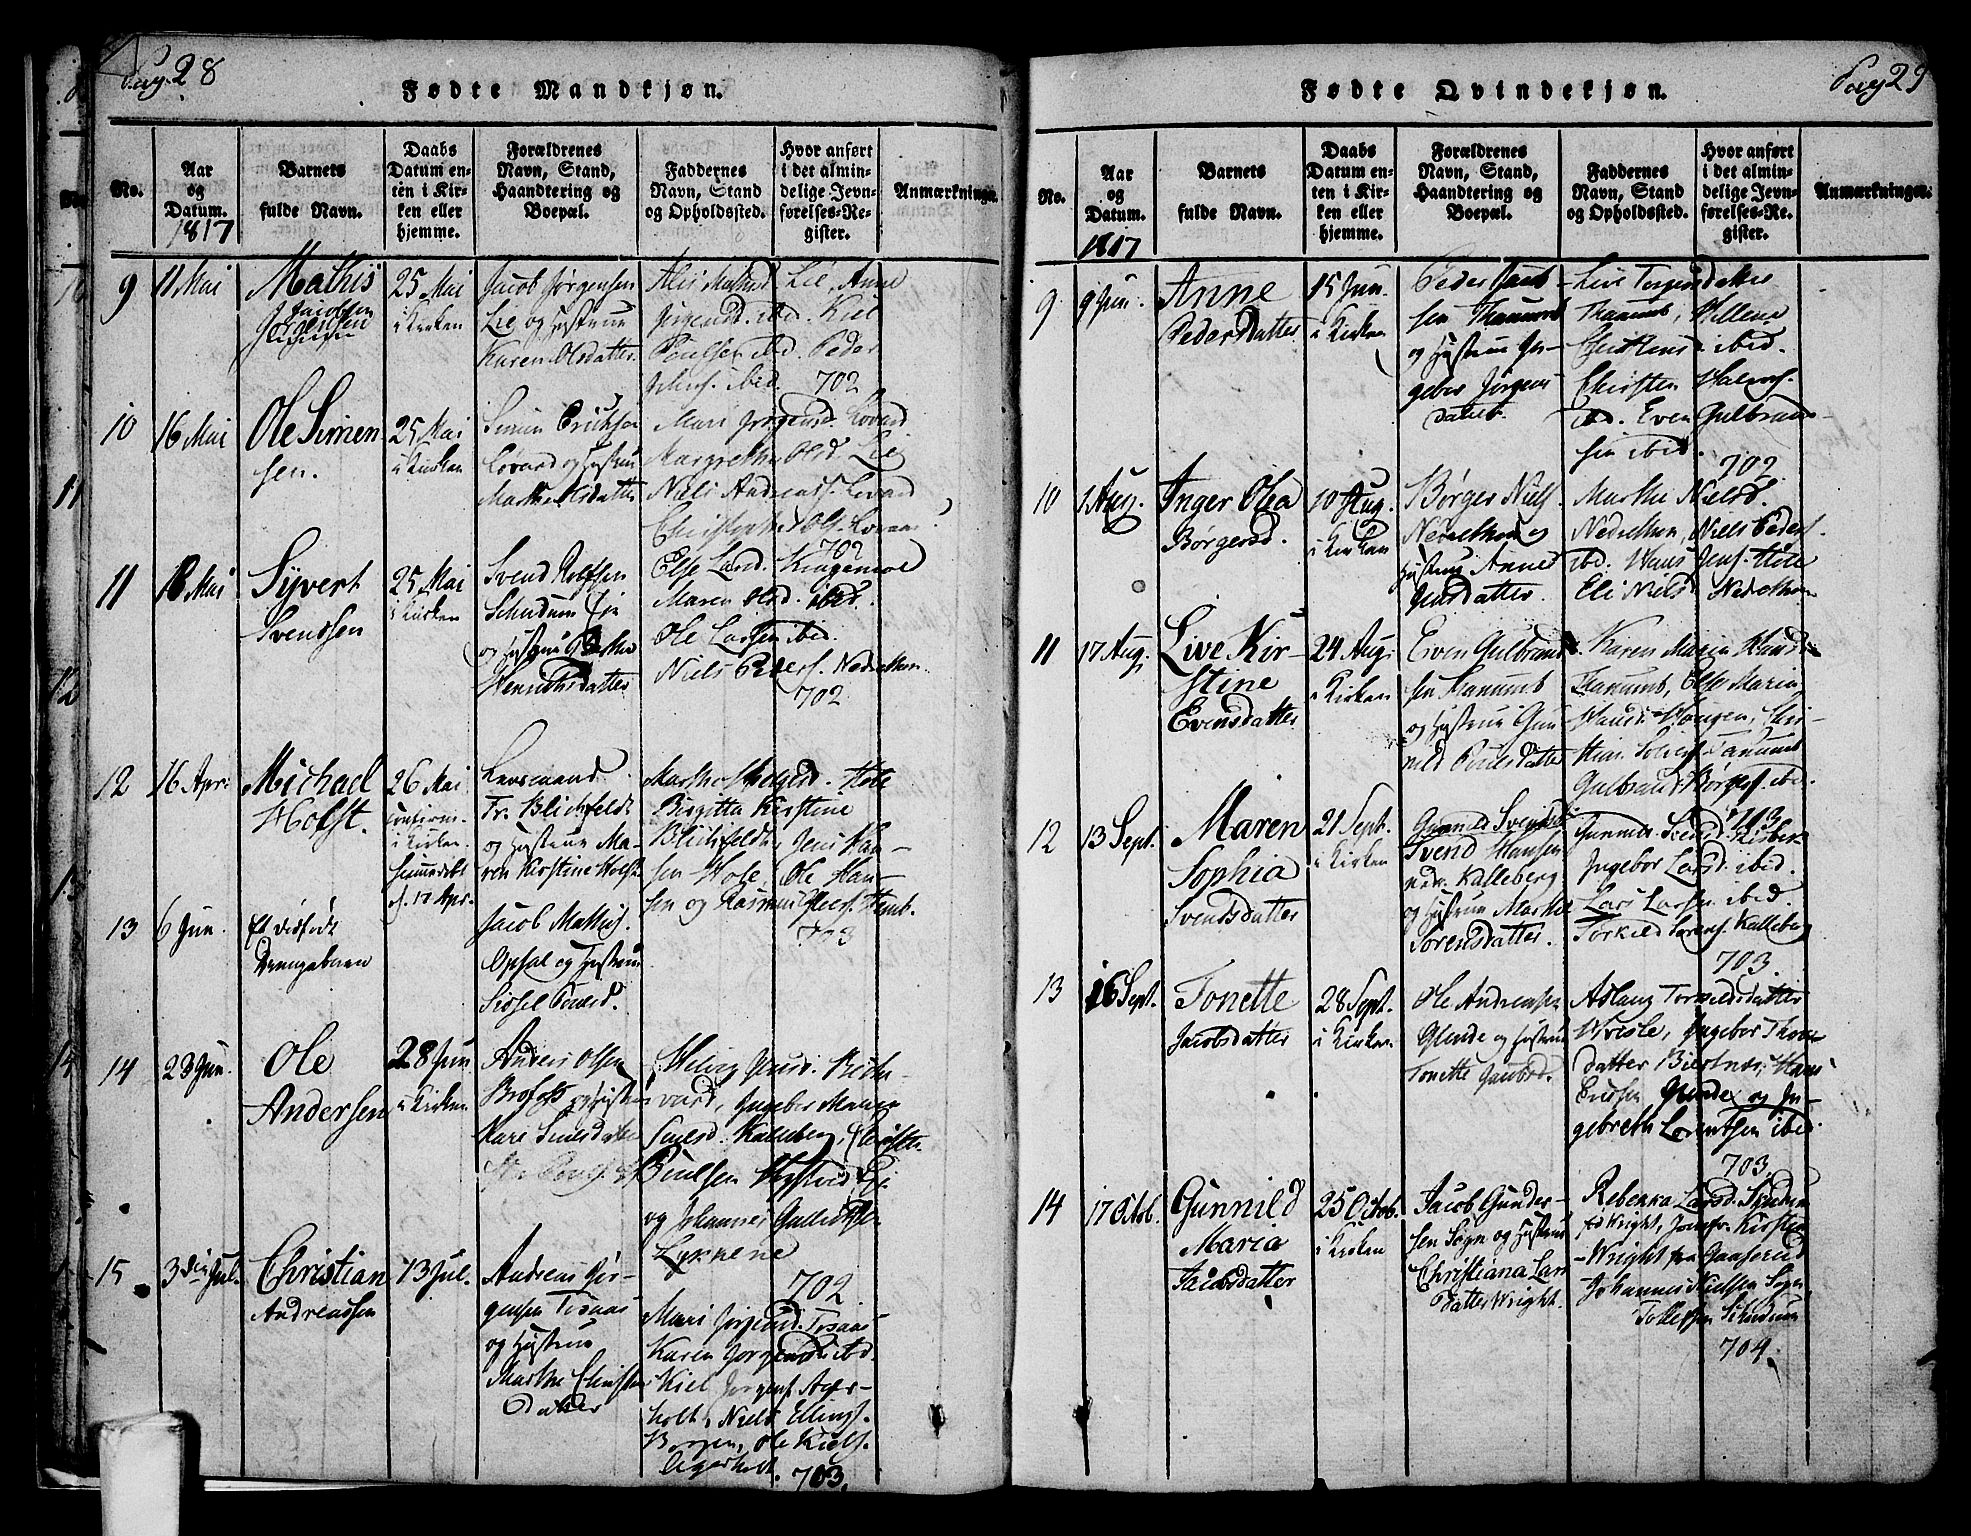 Pag. 28
Fødte Mandkjøn.
No.
Aar og Datum.
1817
Barnets fulde Navn.
Daabs Datum enten i Kirken eller hjemme.
Forældrenes Navn, Stand, Haandtering og Boepæl.
Faddernes Navn, Stand og Opholdssted.
Hvor anført i det almindelige Jevnførelses-Register.
Anmærkninger.
9
11 Mai
Mathis
Jacobsen
25 Mai
i Kirken
Jacob Jørgensen
Lie og Hustrue
Karen Olsdatter
Lie, Anne
Poulsen ibid. Peder
702
10
16 Mai
Ole Simen
sen.
25 Mai
i Kirken
Simen Erichsen
Løvard og Hustrue
Mari Jørgensd. Lovard
Margrethe Olsd. Lie
Niels Andreass. Lovard
702
11
18 Mai
Syvert
Svenssen
25 Mai
i Kirken
Svend Rolfsen
og Hustrue
Henrichsdatter
Else Larsd.
Maren Olsd. ibid.
Ole Larssen ibid.
Niels Peders. Nedrethon.
702
12
16 Apr.
Michael
Holst.
26 Mai
i Kirken
hiemmedøbt
d. 17 Apr.
Lensmand
Fr. Blichfeldt
og Hustrue Ma-
ren Kirstine Holst
Hole
Birgitta Kirstine
Blichfeldt, Jens Han-
sen Hole, Ole Han-
sen og Rasmus
703
13
6 Jun.
Et dødfødt
Drengebarn
Jacob Mathis.
Opsal og Hustrue
Sissel Pouls.
14
23 Jun.
Ole
Andersen
28 Jun
i Kirken
Anders Olsen
og Hustrue
Kari
Helvig Jensd.
vard, Ingebor Maria
Kalleberg, Christen
Poulsen
og Johannes
Lyknene
702
15
3die Jul.
Christian
Andreassen
13 Jul.
Andreas Jør-
gensen Tisaas
og Hustrue
Marthe Christens
datter
Mari Jørgensd. Tisaas
Karen Jørgensd. ibd.
Kiel Jørgens. Ager-
holt, Niels Ellings.
Borgen, Ole Kiels.
Agerholt.
703.
Pag 29
Fødte Qvindekjøn.
No.
Aar og Datum.
1817
Barnets fulde Navn.
Daabs Datum enten i Kirken eller hjemme.
Forældrenes Navn, Stand, Haandtering og Boepæl.
Faddernes Navn, Stand og Opholdssted.
Hvor anført i det almindelige Jevnførelses-Register.
Anmærkninger.
9
9 Jun.
Anne
Pedersdatter
15 Jun.
i Kirken
Peder Jacob-
sen Thanumb
og Hustrue In-
gebor Jørgens
datter.
Live Torgersdatter
Thanumb, Hellena
ibid.
Christen Halvors.
ibd. Even Gulbrand-
sen ibid.
702
10
1 Aug.
Inger Olea
Børgersd.
10 Aug.
i Kirken
Børger Niels.
Nedrethon og
Hustrue Anne
Jensdatter.
Marthe Nielsd.
Nedrethon, Niels Peders.
ibd. Hans Jens. Hole
Eli Nielsd. Nedrethon
11
17 Aug.
Live Kir-
stine
Evensdatter
24 Aug.
i Kirken
Even Gulbrand-
sen Thanumb
og Hustrue Gun
nild Poulsdatter
Karen Maria Hansd.
Thanumb, Else Maria
Hansd. Haugen, Chri-
stian Tanumb
Gulbrand Børges. ibid.
703
12
13 Sept.
Maren
Sophia
Svendsdatter
21 Sept.
i Kirken
Svend Hansen
nedr. Kalleberg
og Hustrue Marthe
Sorensdatter.
Gunnil Svendsd.
Ingebor Larsd. ibid.
Lars Larsen ibid.
Torkild Sorens. Kalleberg
703.
13
16 Sept.
Tonette
Jacobsdatter
28 Sept.
i Kirken
Ole Andreassen
Glende og Hustrue
Tonette Jacobsd.
Aslaug Torkildsdatter
Hvisle, Ingebor Thore
datter Biertnæs, Hans
Erichsen Glende og In-
gebreth Lorentsen ibid.
703.
14
17 Octob.
Gunnild
Maria
Jacobsdatter
25 Octob.
i Kirken
Jacob Gunder-
sen Sogn og Hustrue
Christiana Lars
datter Wright.
Rebekka Larsd.
fød Wright, Jomfr. Kirstine
Wright fra Gaaserud
Johannes Nielsen Sogn
Tollefsen
704.